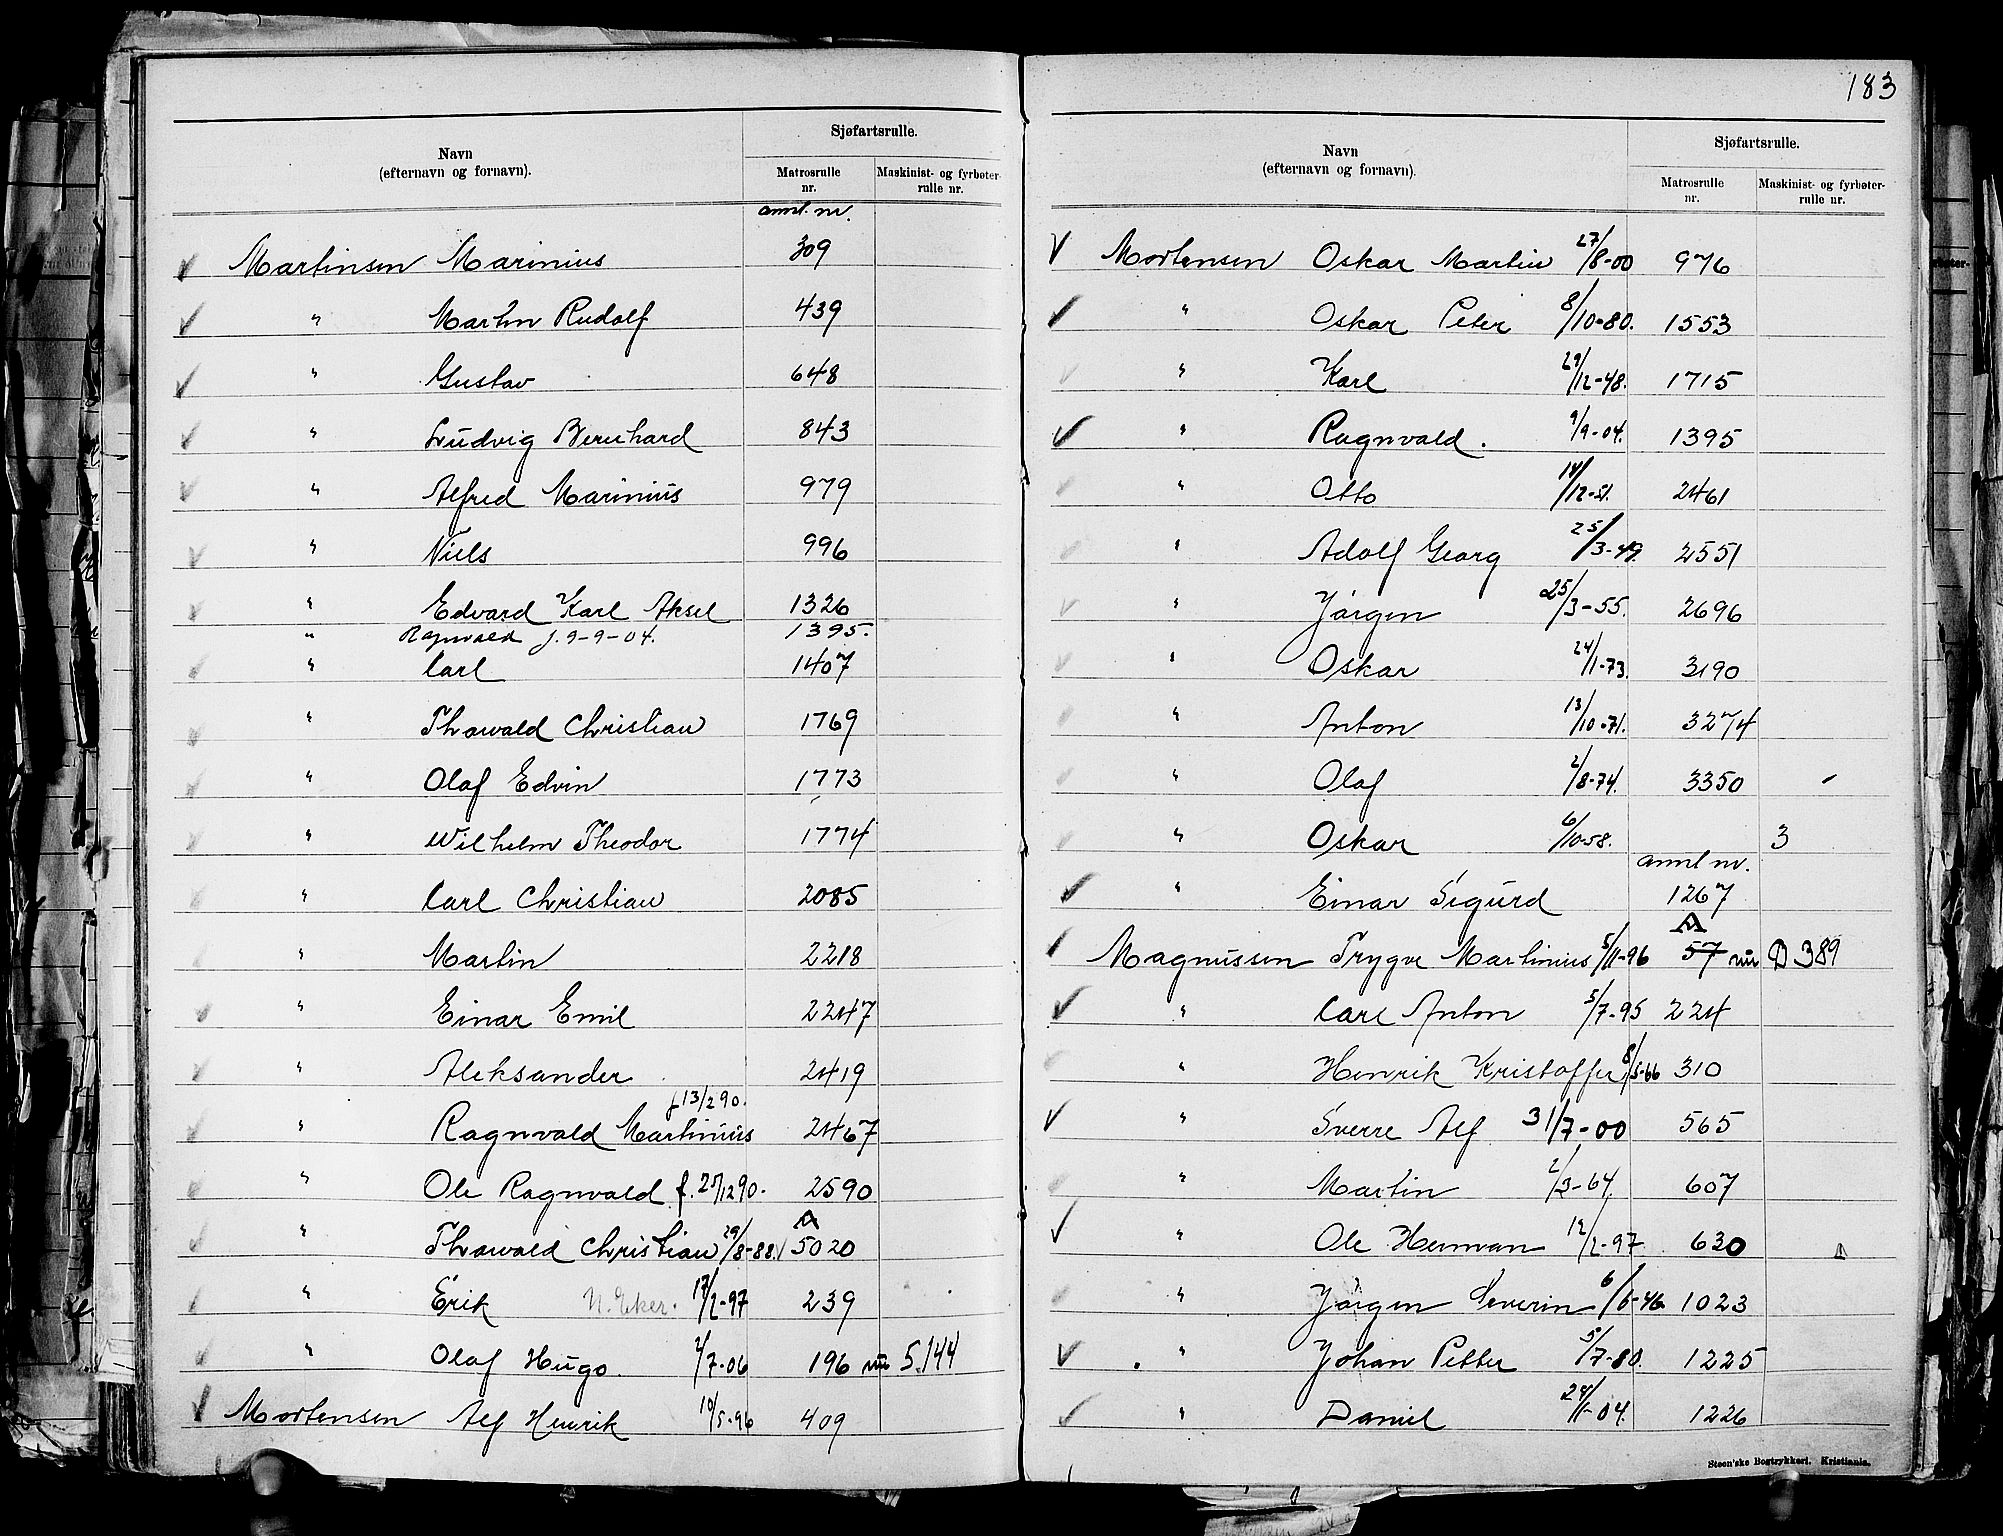 Navn
(efternavn og fornavn).
Sjøfartsrulle.
Matrosrulle nr.
Maskinist- og fyrbøter-rulle nr.
annl. nr.
Martinsen Marinius 309
" Martin Rudolf 439
" Gustav 648
" Ludvig Bernhard 843
" Alfred Marinius 979
" Niels 996
" Edvard Karl Aksel 1326
" Ragnvald f. 9-9-04. 1395.
" Carl 1407
" Thorvald Christian 1769
" Olaf Edvin 1773
" Wilhelm Theodor 1774
" Carl Christian 2085
" Martin 2218
" Einar Emil 2247
" Aleksander 2419
" Ragnvald Martinius f 13/2 90. 2467
" Ole Ragnvald f. 27/12 90. 2590
" Thorvald Christian 29/8-88. A 5020
" Erik N. Eker. 17/2-97 239
" Olaf Hugo 2/7-06 196 nu S.144
Mortensen Alf Henrik 10/5-96 409
183
Navn
(efternavn og fornavn).
Sjøfartsrulle.
Matrosrulle nr.
Maskinist- og fyrbøter-rulle nr.
Mortensen Oskar Martin 27/8-00 976
" Oskar Peter 8/10-80. 1553
" Karl 29/12-48. 1715
" Ragnvald. 9/9-04. 1395
" Otto 14/12-51. 2461
" Adolf Georg 25/3-49. 2551
" Jörgen 25/3-55. 2696
" Oskar 24/1-73. 3190
" Anton 13/10-71. 3274
" Olaf 2/8-74. 3350
" Oskar 6/10-58. 3
annl nr.
" Einar Sigurd 1267
Magnussen Trygve Martinius 5/11-96 A 57 nu D 389
" Carl Anton 5/7-95 224
" Henrik Kristoffer 8/5-66 310
" Sverre Alf 31/7-00 565
" Martin 2/3-64. 607
" Ole Herman 12/2-97 630
" Jörgen Severin 6/6-46 1023
" Johan Petter 5/7-80. 1225
" Daniel 24/1-04. 1226
Steen'ske Bogtrykkeri. Kristiania.